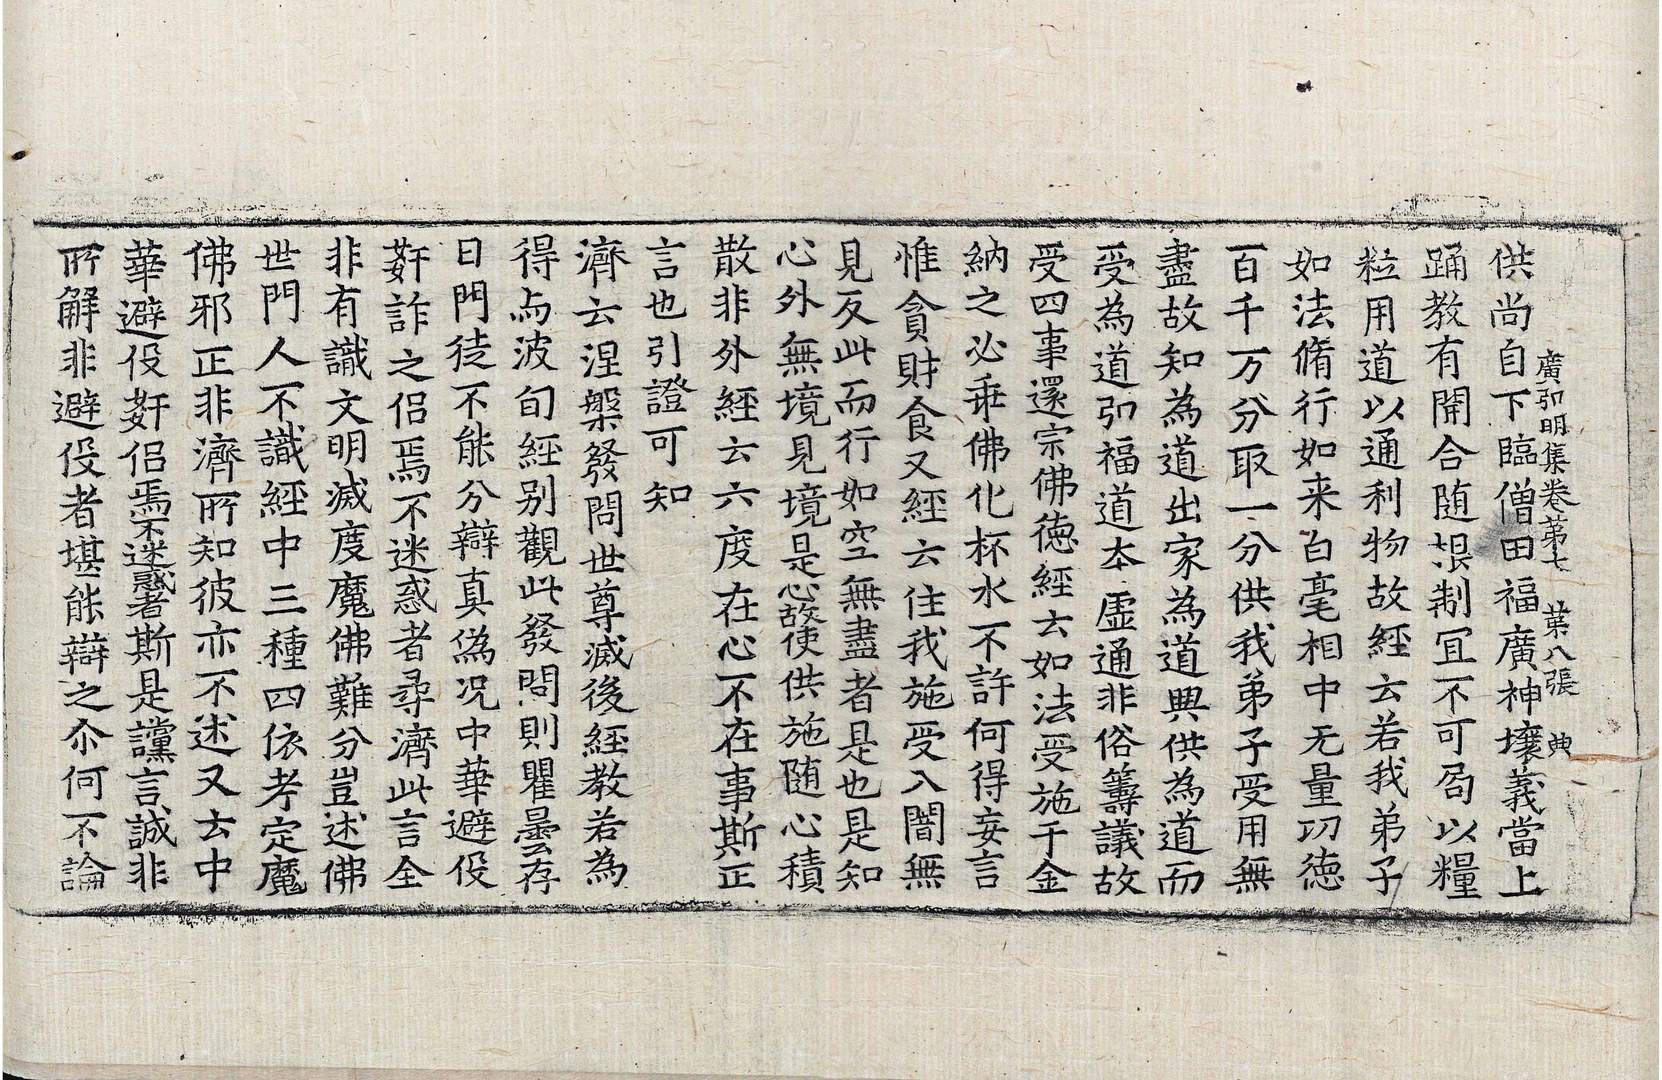 廣弘明集卷第七 葉八張 典
供尚自下臨僧田福廣神壤義當上
踊教有開合随根制冝不可局以糧
粒用道以通利物故經云若我弟子
如法脩行如来白毫相中无量功徳
百千万分取一分供我弟子受用無
盡故知為道出家為道興供為道而
受為道引福道本虛通非俗籌議故
受四事還宗佛徳經云如法受施千金
納之必乖佛化杯水不許何得妄言
惟貪財食又經云住我施受入闇無
見反此而行如空無盡者是也是知
心外無境見境是心故使供施随心積
散非外經云六度在心不在事斯正
言也引證可知
濟云涅槃發問世尊滅後經教若為
得与波旬經别觀此發問則瞿曇存
日門徒不能分辯真偽况中華避役
姧詐之侣焉不迷惑者尋濟此言全
非有識文明滅度魔佛難分豈述佛
世門人不識經中三種四依考定魔
佛邪正非濟所知彼亦不迷又云中
華避役姧侣焉不迷惑者斯是讜言誠非
所解非避役者堪能辯之尒何不論